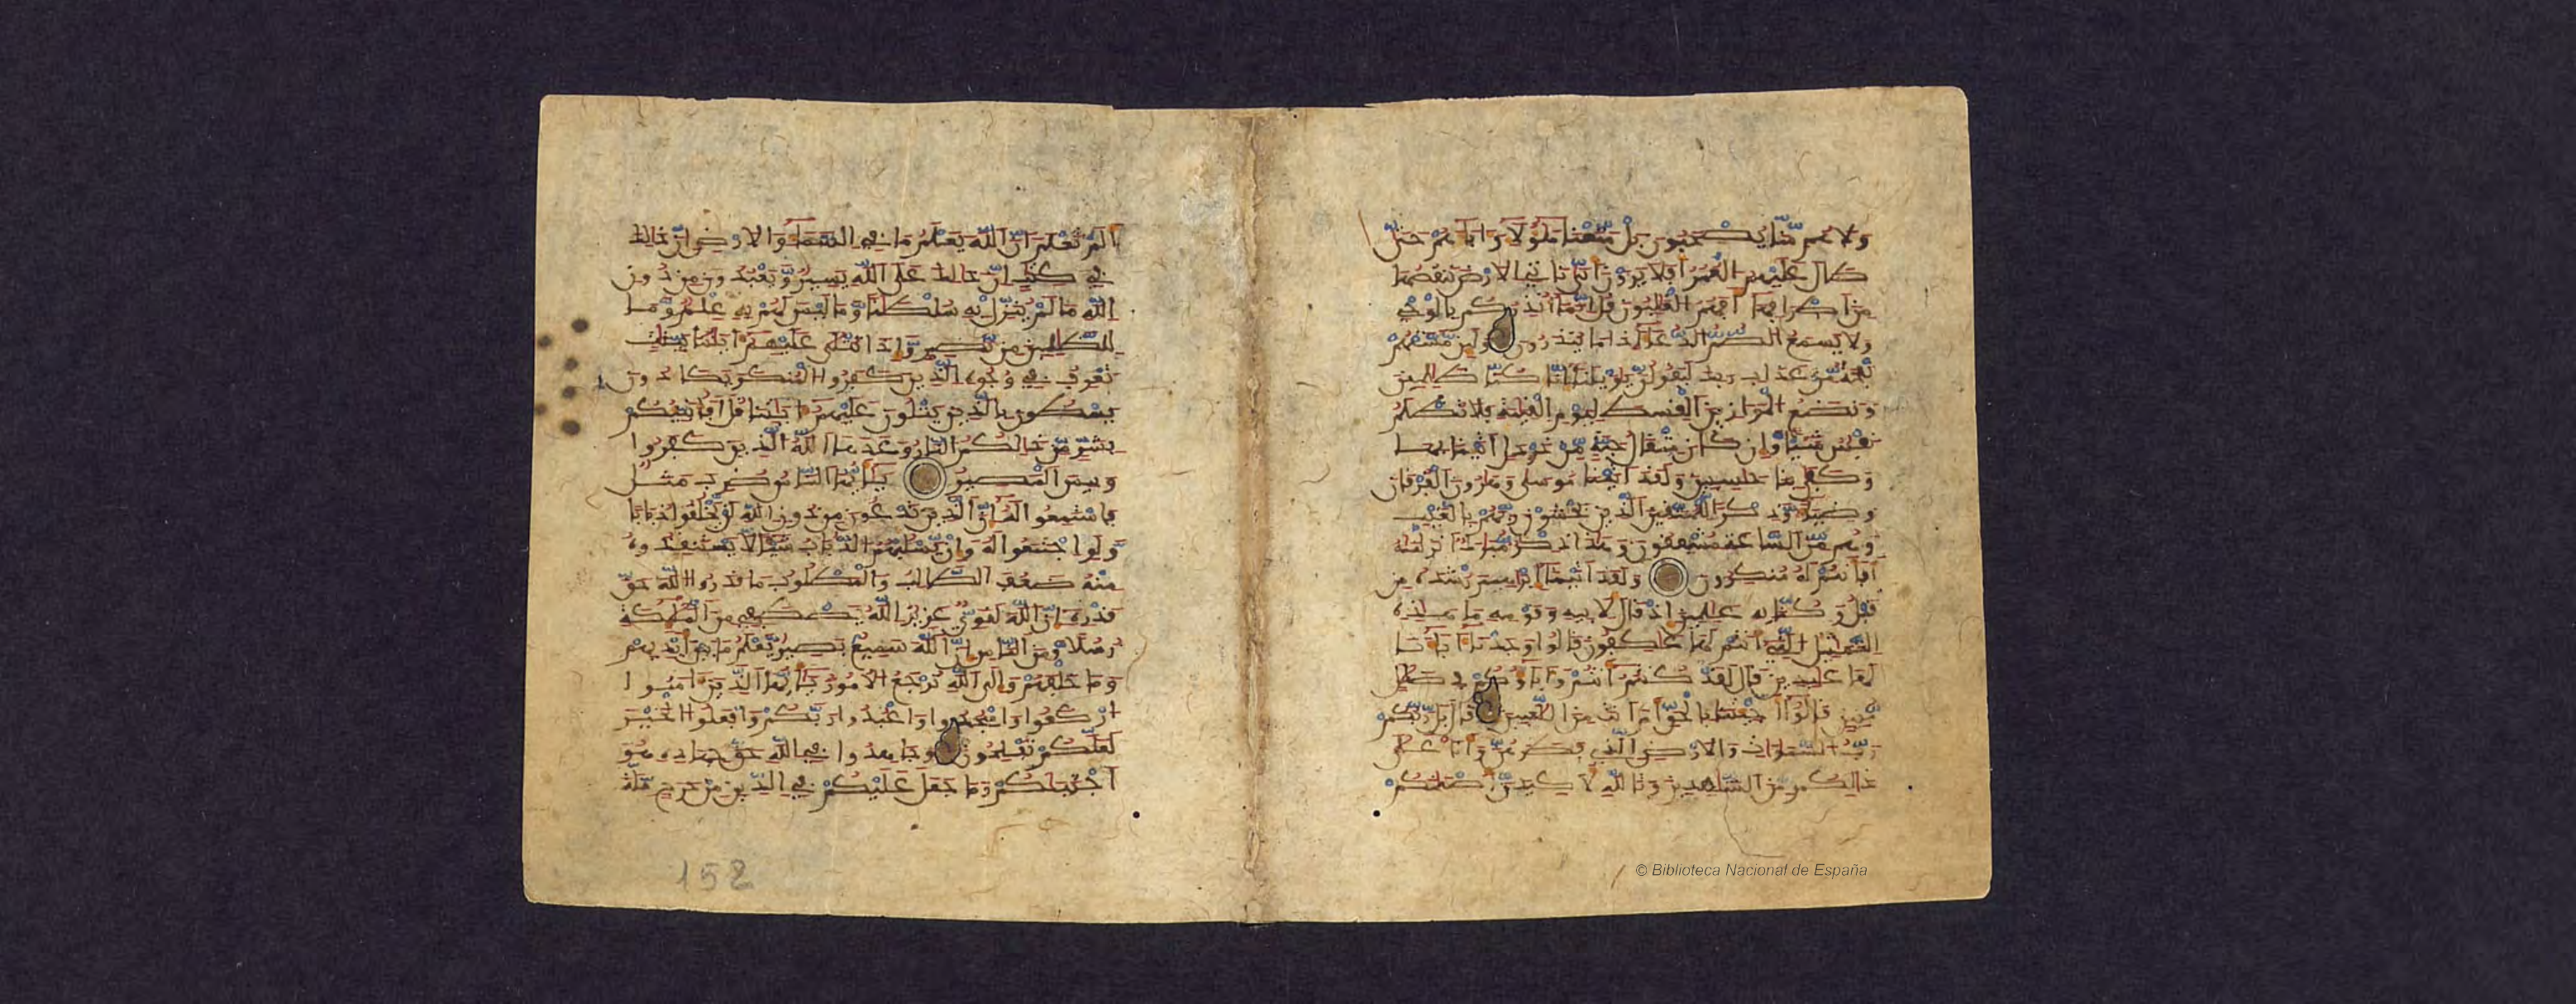 ولا هم منا يصحبون بل متعنا هؤلاء وءاباءهم حتى
طال عليهم العمر أفلا يرون أنا نأتي الأرض ننقصها
من أطرافها أفهم الغلبون قل إنما أنذركم بالوحي
ولا يسمع الصم الدعاء إذا ما ينذرون ولئن مستهم
نفحة من عذاب ربك ليقولن يويلنا إنا كنا ظلمين
ونضع الموازين القسط ليوم القيمة فلا تظلم
نفس شيئا وإن كان مثقال حبة من خردل أتينا بها
وكفى بنا حسبين ولقد ءاتينا موسى وهرون الفرقان
وضياء وذكرا للمتقين الذين يخشون ربهم بالغيب
وهم من الساعة مشفقون وهذا ذكر مبرك أنزلنه
أفأنتم له منكرون ولقد ءاتينا إبرهيم رشده من
قبل وكنا به علمين إذ قال لأبيه وقومه ما هذه
التماثيل التي أنتم لها عاكفون قالوا وجدنا ءاباءنا
لها عبدين قال لقد كنتم أنتم وءاباؤكم في ضلل
مبين قالوا أجئتنا بالحق أم أنت من اللعبين قال بل ربكم
رب السموات والأرض الذي فطرهن وأنا على
ذلكم من الشهدين وتالله لأكيدن أصنمكم
ألم تعلم أن الله يعلم ما في السماء والأرض إن ذلك
في كتب إن ذلك على الله يسير ويعبدون من دون
الله ما لم ينزل به سلطنا وما ليس لهم به علم وما
للظلمين من نصير وإذا تتلى عليهم ءايتنا بينت
تعرف في وجوه الذين كفروا المنكر يكادون
يسطون بالذين يتلون عليهم ءايتنا قل أفأنبئكم
بشر من ذلكم النار وعدها الله الذين كفروا
وبيس المصير يأيها الناس ضرب مثل
فاستمعوا له إن الذين تدعون من دون الله لن يخلقوا ذبابا
ولو اجتمعوا له وإن يسلبهم الذباب شيئا لا يستنقذوه
منه ضعف الطالب والمطلوب ما قدروا الله حق
قدره إن الله لقوي عزيز الله يصطفي من الملئكة
رسلا ومن الناس إن الله سميع بصير يعلم ما بين أيديهم
وما خلفهم وإلى الله ترجع الأمور يأيها الذين ءامنوا
اركعوا واسجدوا واعبدوا ربكم وافعلوا الخير
لعلكم تفلحون وجاهدوا في الله حق جهاده هو
اجتبىكم وما جعل عليكم في الدين من حرج ملة
152
© Biblioteca Nacional de España